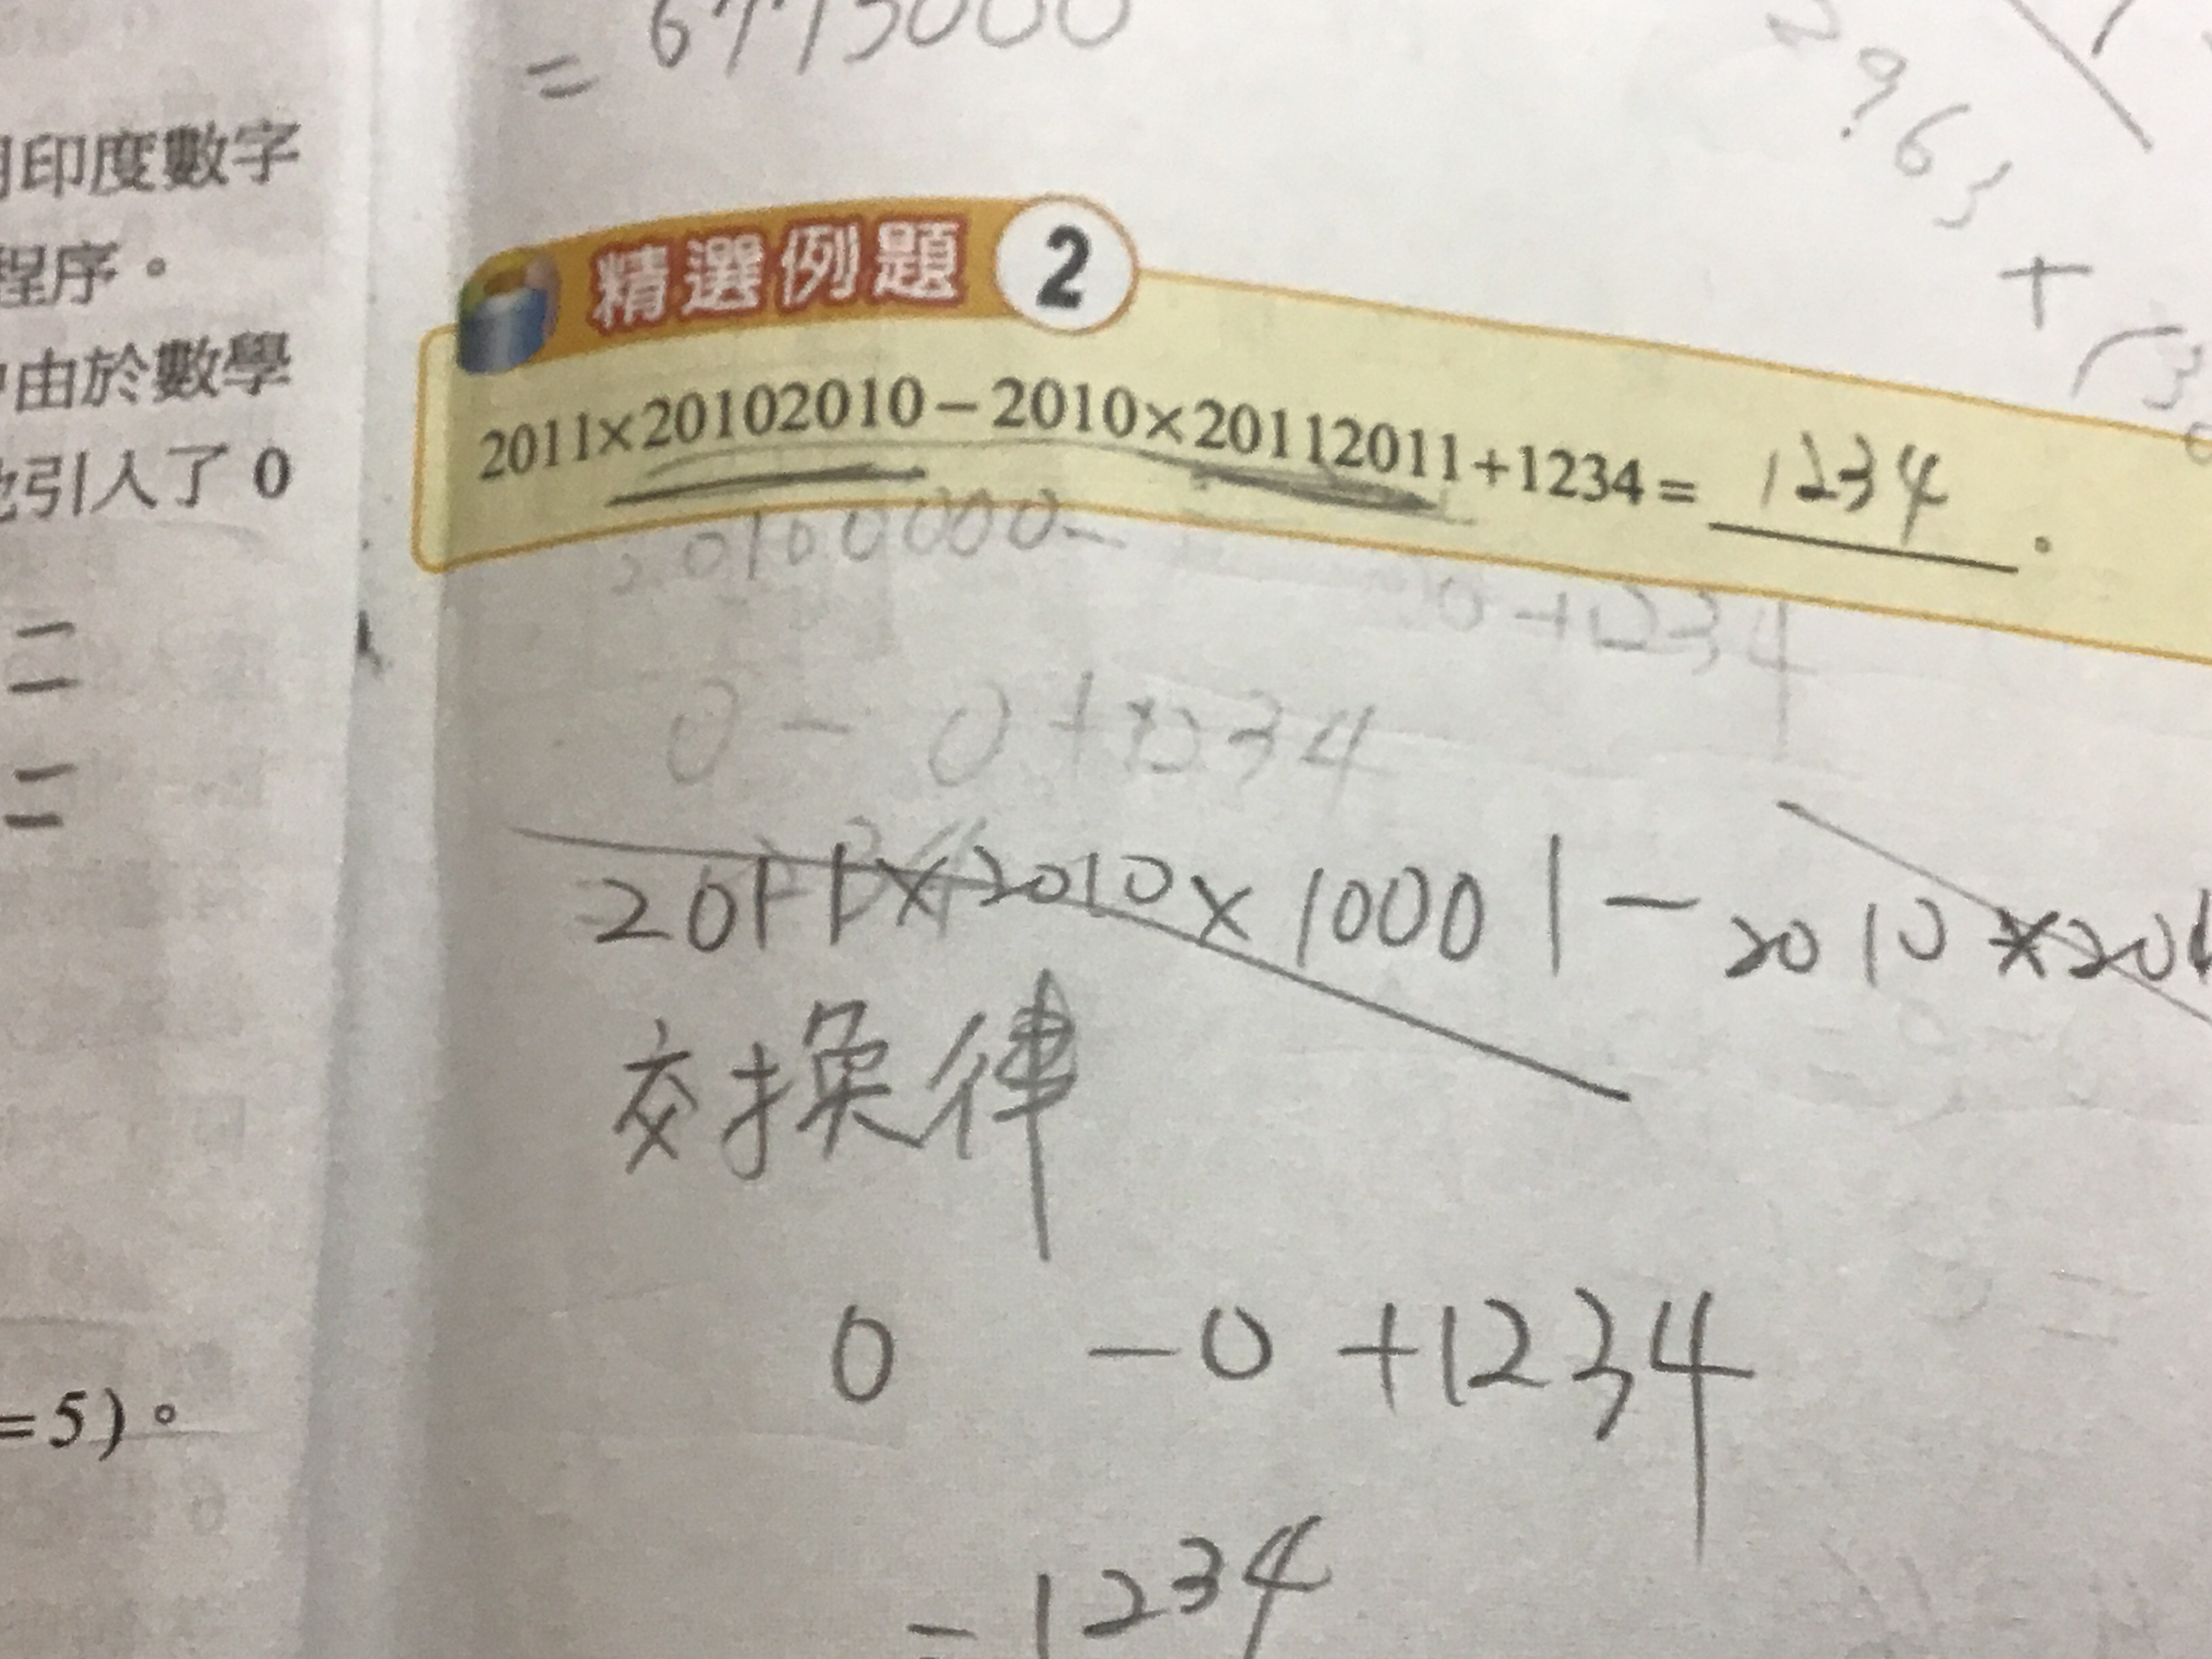 = 6775000
2963
+
印度數字
程序。
由於數學
引入了 0
=5)。
精選例題 2
2011×20102010-2010×20112011+1234= 1234 。
20100000-
0+1234
0-0+1234
2011×2010×10001-2010×201
交換律
0 -0+1234
=1234